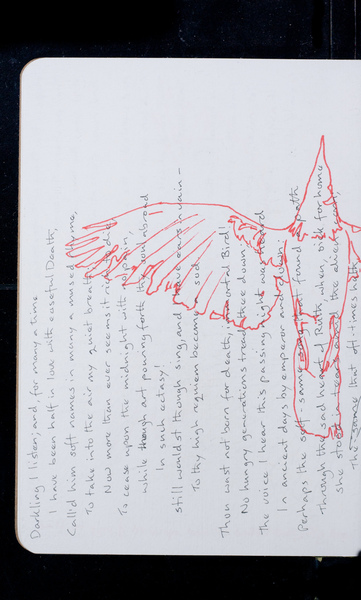 Darkling I listen; and, for many a time
I have been half in love with easeful Death,
Call'd him soft names in many a mused rhyme,
To take into the air my quiet breath
Now more than ever seems it rich to die
To cease upon the midnight with no pain,
while though art pouring forth thy soul abroad
In such ectasy!
still wouldst though sing, and I have ears in vain –
To thy high requiem become a sod
Thou wast not born for death, immortal Bird!
No hungry generations tread thee down;
The voice I hear this passing night was heard
In ancient days by emperor and clown:
Perhaps the self-same song that found a path
Through the sad heart of Ruth, when, sick for home
She stood in tears amid the alien corn;
The same that oft-times hath